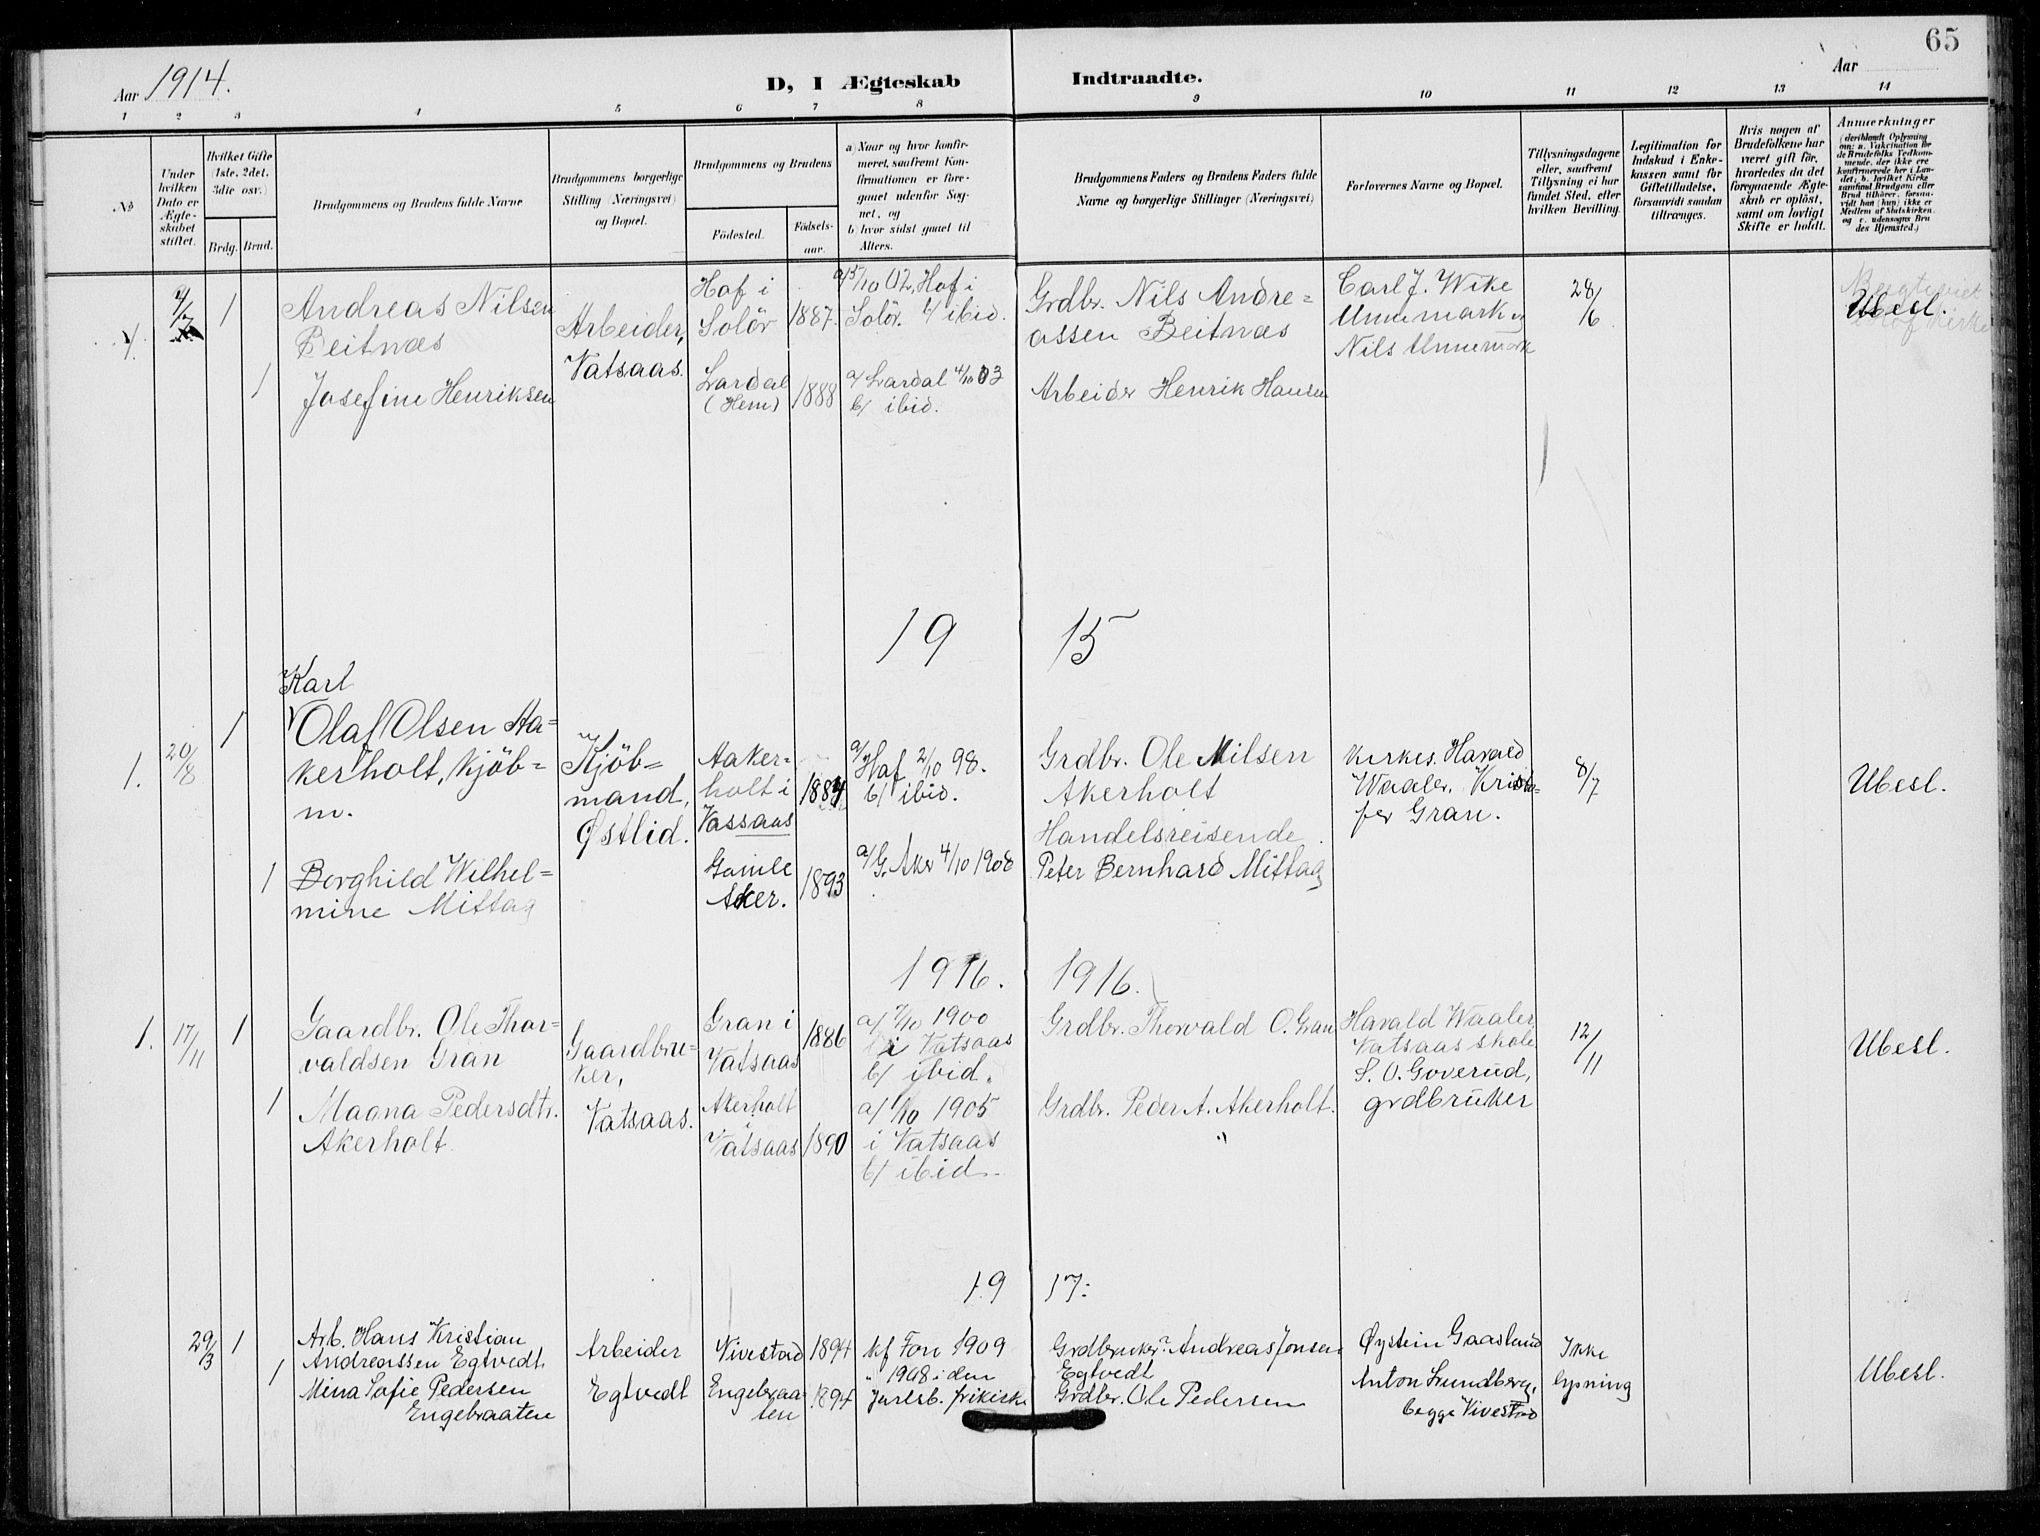 65
Aar 1914.
D, I Ægteskab Indtraadte.
Aar
1 2 3 4 5 6 7 8 9 10 11 12 13 14
No
Under
hvilken
Dato er
Ægte-
skabet
stiftet.
Hvilket Gifte
(1ste, 2det,
3die osv.)
Brdg. Brud.
Brudgommens og Brudens fulde Navne
Brudgommens borgerlige
Stilling (Næringsvei)
og Bopæl.
Brudgommens og Brudens
Födested.
Födsels-
aar.
a) Naar og hvor konfir-
meret, saafremt Kon-
firmationen er fore-
gaaet udenfor Sog-
net, og
b) hvor sidst gaaet til
Alters.
Brudgommens Faders og Brudens Faders fulde
Navne og borgerlige Stillinger (Næringsvei)
Forlovernes Navne og Bopæl.
Tillysningsdagene
eller, saafremt
Tillysning ei har
fundet Sted, efter
hvilken Bevilling.
Legitimation for
Indskud i Enke-
kassen samt for
Giftetilladelse,
forsaavidt saadan
tiltrænges.
Hvis nogen af
Brudefolkene har
været gift før,
hvorledes da det
foregaaende Ægte-
skab er opløst,
samt om lovligt
Skifte er holdt.
Anmærkninger
(deriblandt Oplysning
om: a. Vakcination for
de Brudefolks Vedkom-
mende, der ikke ere
konfirmerede her i Lan-
det; b. hvilket Kirke
samfund Brudgom eller
Brud tilhører, forsaa-
vidt han (hun) ikke er
Medlem af Statskirken.
og c. udensogns Bru
des Hjemsted.)
4. 1
Andreas Nilsen
Beitnæs
Arbeider,
Vatsaas.
Hof i
Solör
1887.
a) 5/10 02, Hof i
Solör. b/ ibid.
Grdbr. Nils Andre=
assen Beitnæs
Carl J. Wike
Unnemark og
Nils Unnemark
28/6
Ubesl.
1
Josefine Henriksen
Lardal
(Hem)
1888
a/ Lardal 4/10 03
b/ ibid.
Arbeider Henrik Hansen
19 15
1. 20/8 1
Karl
Olaf Olsen Aa=
kerholt, kjöb=
m.
Kjöb=
mand,
Østlid.
Aaker=
holt i
Vassaas
1884
a/
Hof 2/10 98.
b/ ibid.
Grdbr. Ole Nilsen
Akerholt
Kirkes. Havald
Waaler, Kristo=
fer Gran.
8/7
Ubesl.
1
Borghild Wilhel=
mine Mittag
Gamle
Aker.
1893
a/ G. Aker 4/10 1908
Handelsreisende
Peter Bernhard Mittag
1916. 1916.
1. 17/11 1
Gaardbr. Ole Thor=
valdsen Gran
Gaardbru=
ker,
Vatsaas.
Gran i
Vatsaas
1886
a/ 7/10 1900
i Vatsaas
b/ ibid.
Grdbr. Thorvald O. Gran
Havald Waaler
Vatsaas skole
S. O. Goverud,
grdbruker
12/11
Ubesl.
1
Magna Pedersdtr.
Akerholt.
Akerholt
i
Vatsaas
1890
a/ 1/10 1905
i Vatsaas
b/ ibid.
Grdbr. Peder A. Akerholt.
"
19 17.
29/3 1
Arb. Hans Kristian
Andreassen Egtvedt
Arbeider
Egtvedt
Vivestad
1894
kf Fon 1909
Grdbruker Andreas Jonsen
Egtvedt
Øystein Gaaslund
Anton Lundberg,
begge Vivestad
Ikke
lysning
Ubesl.
1
Mina Sofie Pedersen
Engebraaten
Engebraa=
ten
1894
" 1908 i den
Jarlsb. frikirke
Grdbr. Ole Pedersen